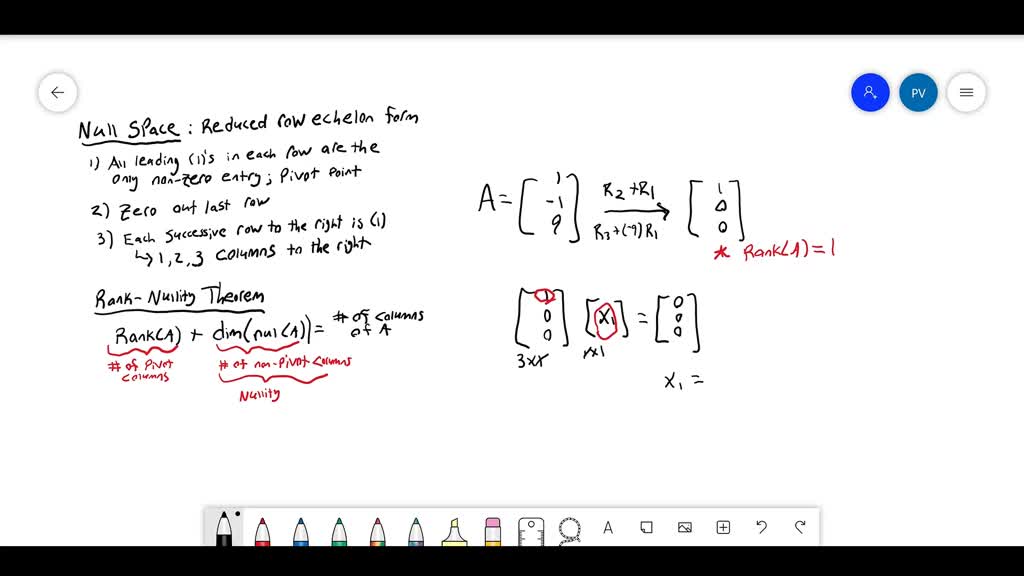 PV
Null Space : Reduced row echelon form
1) All leading (1)'s in each row are the
only non-zero entry; Pivot Point
2) Zero out last row
3) Each Successive row to the right is (1)
↳ 1, 2, 3 columns to the right
Rank-Nullity Theorem
Rank(A) + dim(nul(A)) = # of columns
of A
# of Pivot
columns
# of non-Pivot columns
Nullity
A = [1
-1
9]
R2 + R1
R3 + (-9) R1
[1
0
0]
* Rank(A) = 1
[1
0
0] [x1] = [0
0
0]
3x1 1x1
x1 =
A